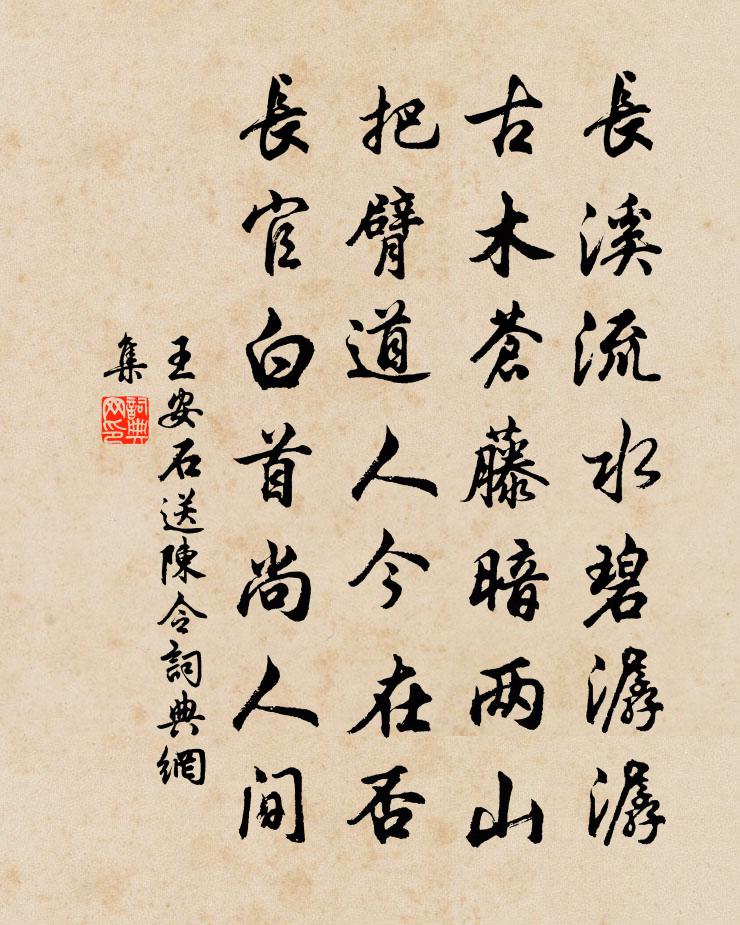 長溪流水碧潺潺
古木蒼藤暗两山
把臂道人今在否
長官白首尚人间
王安石送陳令詞典網
集
詞典
网印